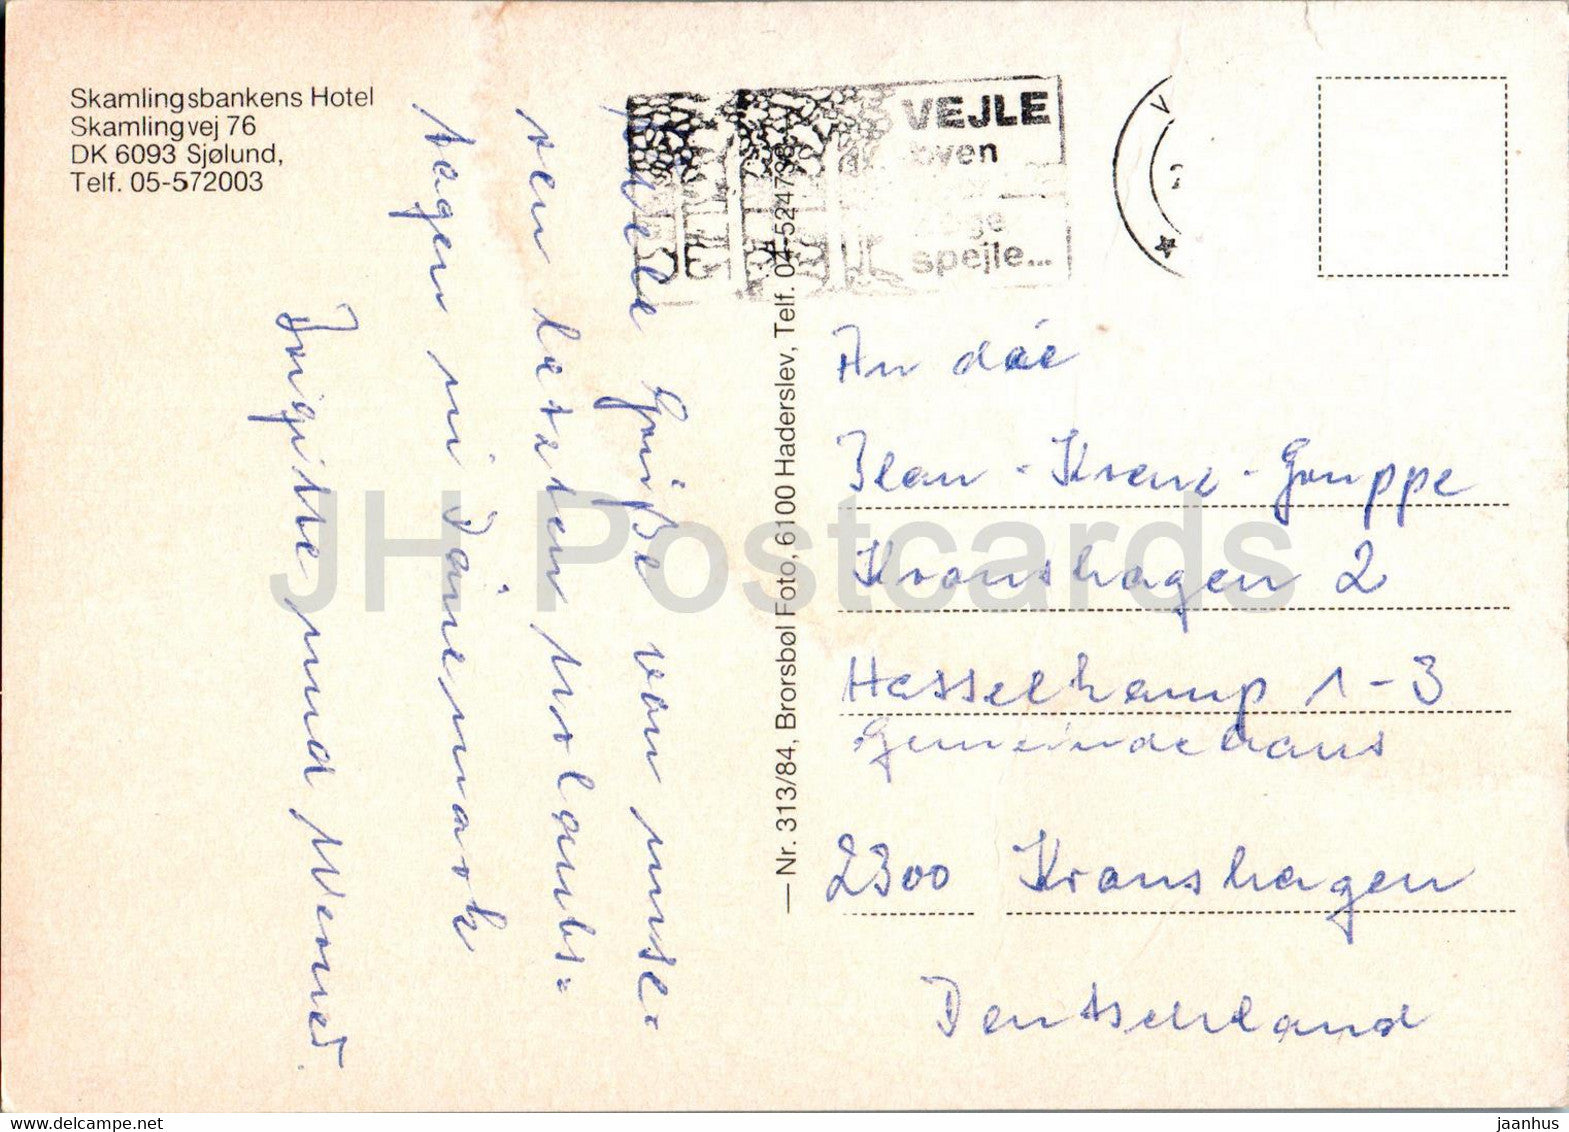 Skamlingsbankens Hotel
Skamlingvej 76
DK 6093 Sjølund,
Telf. 05-572003
VEJLE
oven
spejle...
V
Viele Grüße von unse-
ren letzten Urlaubs-
tagen in Dänemark
Brigitte und Werner.
— Nr. 313/84, Brorsbøl Foto, 6100 Haderslev, Telf. 04-524798
An die
Blau-Kreuz-Gruppe
Kronshagen 2
Hasselkamp 1-3
Gemeindehaus
2300 Kronshagen
Deutschland
JH Postcards
jaanhus www.delcampe.net